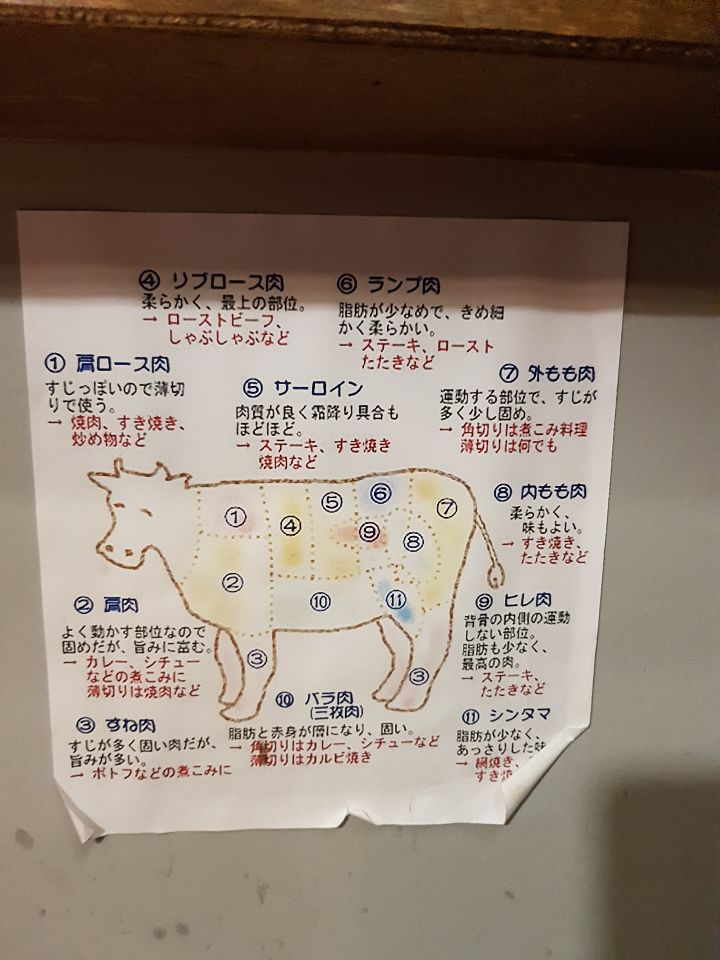 ④ リブロース肉
柔らかく、最上の部位。
→ ローストビーフ、
しゃぶしゃぶなど
⑥ ランプ肉
脂肪が少なめで、きめ細
かく柔らかい。
→ ステーキ、ロースト
たたきなど
① 肩ロース肉
すじっぽいので薄切
りで使う。
→ 焼肉、すき焼き、
炒め物など
⑤ サーロイン
肉質が良く霜降り具合も
ほどほど。
→ ステーキ、すき焼き
焼肉など
⑦ 外もも肉
運動する部位で、すじが
多く少し固め。
→ 角切りは煮こみ料理
薄切りは何でも
⑧ 内もも肉
柔らかく、
味もよい。
→ すき焼き、
たたきなど
①
④
⑤
⑥
⑦
⑨
⑧
②
⑩
⑪
③
③
② 肩肉
よく動かす部位なので
固めだが、旨みに富む。
→ カレー、シチュー
などの煮こみに
薄切りは焼肉など
⑨ ヒレ肉
背骨の内側の運動
しない部位。
脂肪も少なく、
最高の肉。
→ ステーキ、
たたきなど
③ すね肉
すじが多く固い肉だが、
旨みが多い。
→ ポトフなどの煮こみに
⑩ バラ肉
(三枚肉)
脂肪と赤身が層になり、固い。
→ 角切りはカレー、シチューなど
薄切りはカルビ焼き
⑪ シンタマ
脂肪が少なく、
あっさりした味
→ 網焼き、
すき焼